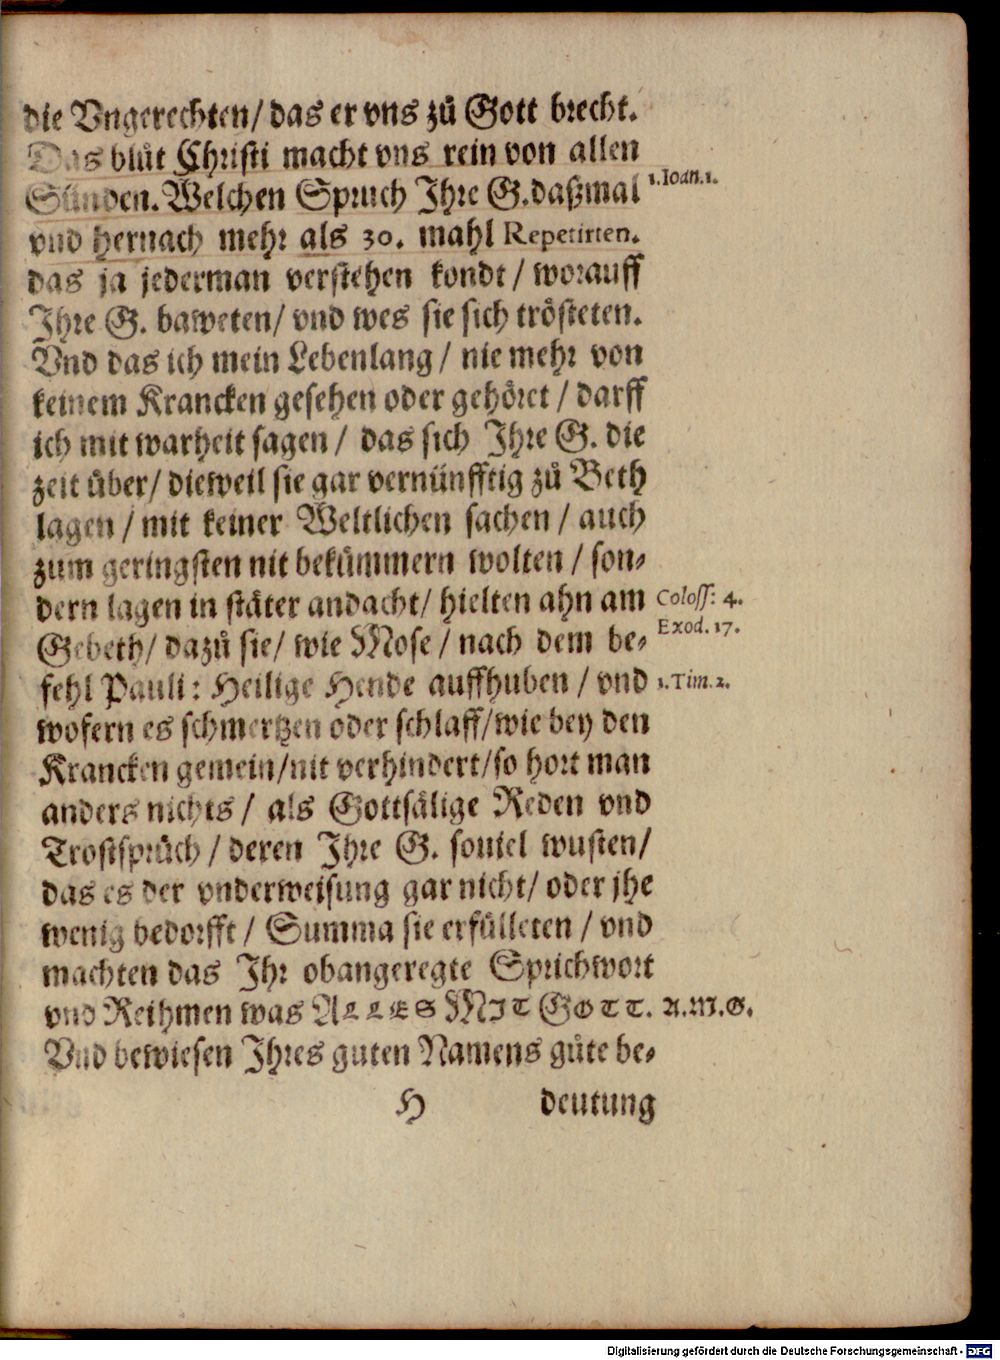 die Vngerechten/ das er vns zů Gott brecht.
Das blůt Christi macht vns rein von allen
Sünden. Welchen Spruch Ihre G. daßmal 1. Ioan. 1.
vnd hernach mehr als 30. mahl Repetirten.
das ja jederman verstehen kondt / worauff
Ihre G. baweten/ vnd wes sie sich trösteten.
Vnd das ich mein Lebenlang / nie mehr von
keinem Krancken gesehen oder gehöret / darff
ich mit warheit sagen / das sich Ihre G. die
zeit über/ dieweil sie gar vernünfftig zů Beth
lagen / mit keiner Weltlichen sachen / auch
zum geringsten nit bekümmern wolten / son-
dern lagen in stäter andacht/ hielten ahn am Coloss: 4.
Gebeth/ dazů sie/ wie Mose / nach dem be- Exod. 17.
fehl Pauli: Heilige Hende auffhuben / vnd 1. Tim. 2.
wofern es schmertzen oder schlaff/ wie bey den
Krancken gemein/ nit verhindert/ so hort man
anders nichts / als Gottsälige Reden vnd
Trostsprüch / deren Ihre G. souiel wusten/
das es der vnderweisung gar nicht/ oder jhe
wenig bedorfft / Summa sie erfülleten / vnd
machten das Ihr obangeregte Sprichwort
vnd Reihmen was ALLES MIT GOTT. A.M.G.
Vnd bewiesen Ihres guten Namens gůte be-
H deutung
Digitalisierung gefördert durch die Deutsche Forschungsgemeinschaft - DFG